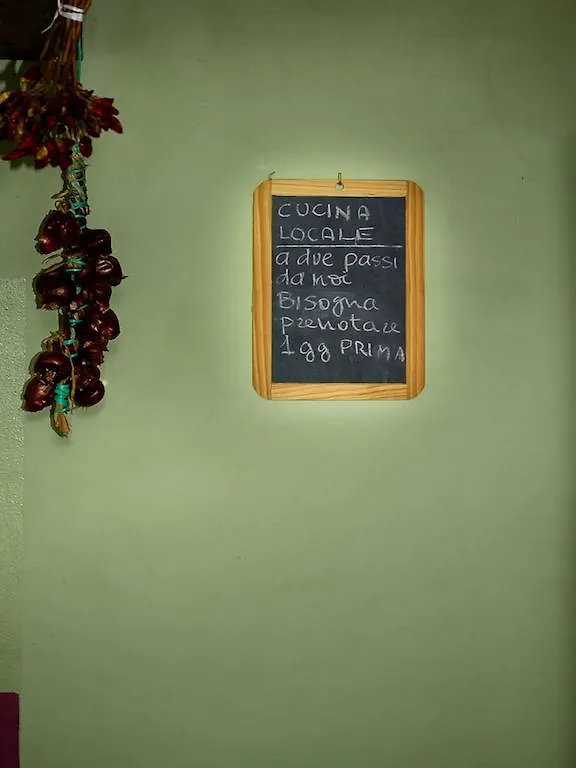 CUCINA
LOCALE
a due passi
da noi
Bisogna
prenotare
1gg PRIMA